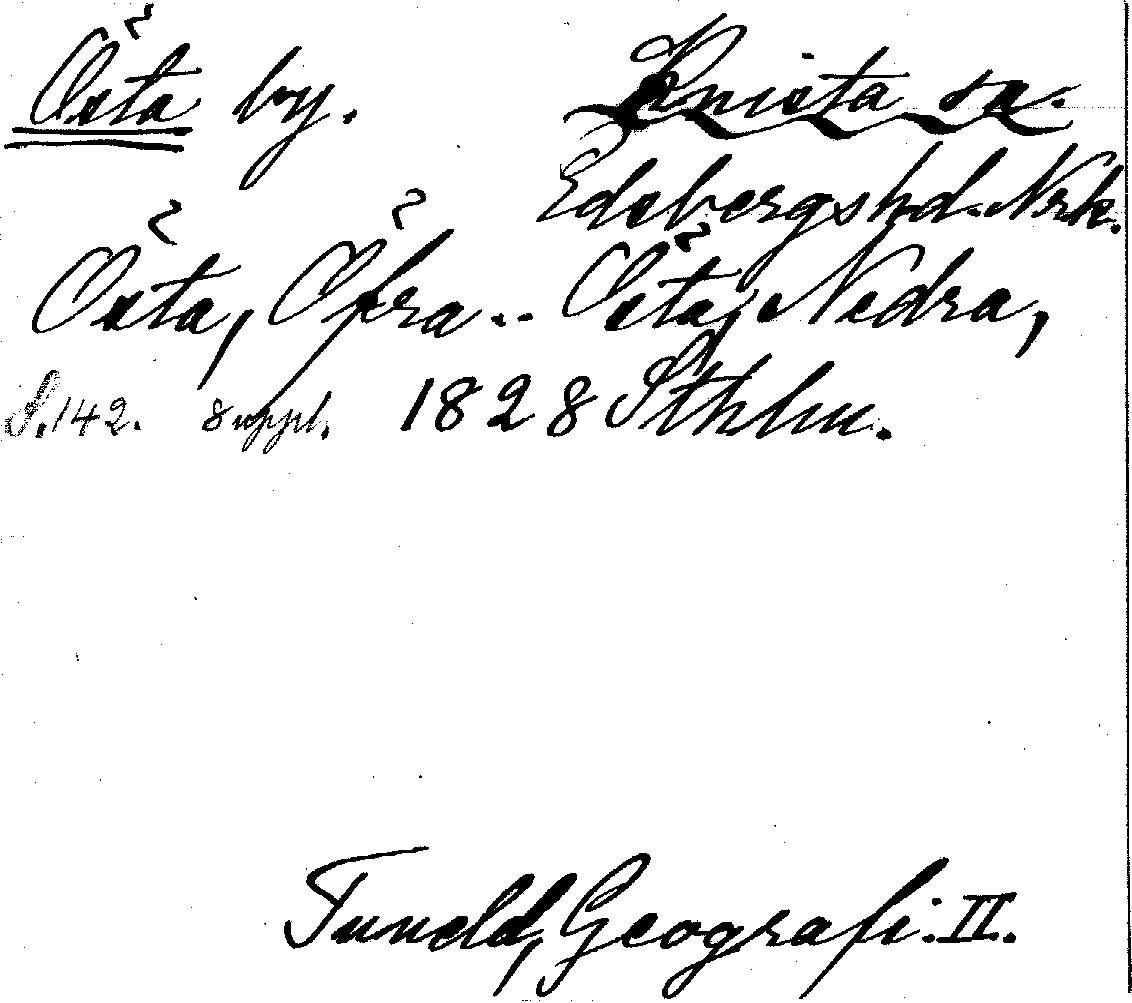 Östa by. Knista sn.
Edsbergs hd. Nrk.
Östa, Öfra .. Östa, Nedra,
S. 142. suppl. 1828 Sthlm.
Tuneld, Geografi. II.